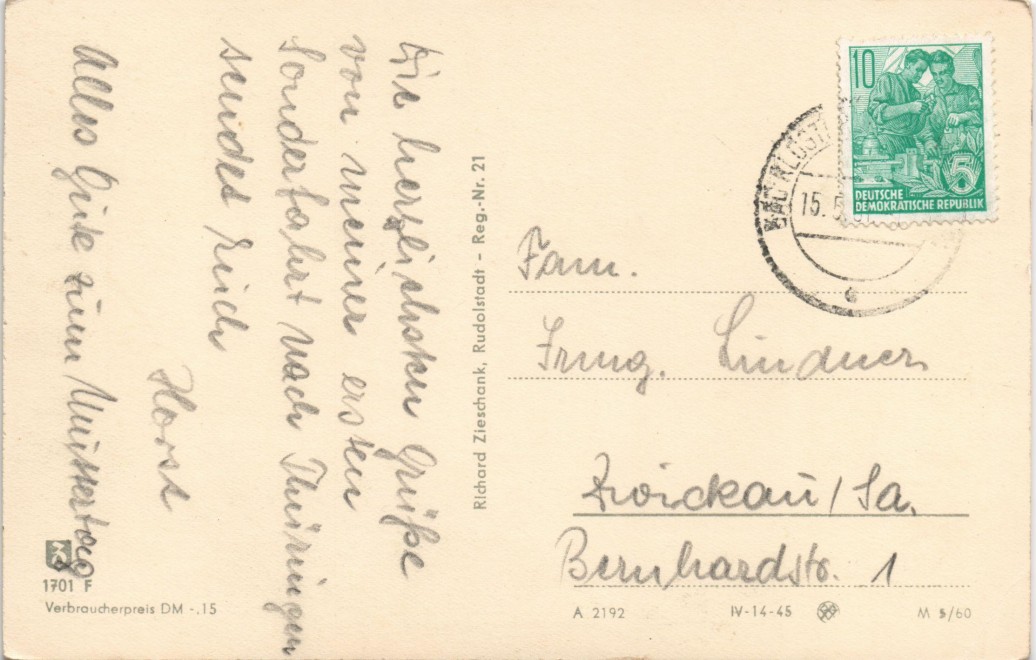 Die herzlichsten Grüße
von meiner ersten
Sonderfahrt nach Thüringen
sendet Euch
Horst
Alles Gute zum Muttertag
1701 F
Verbraucherpreis DM -.15
Richard Zieschank, Rudolstadt - Reg.-Nr. 21
10
5
DEUTSCHE
DEMOKRATISCHE REPUBLIK
15. 5.
Fam.
Irmg. Lindner
Zwickau/Sa.
Bernhardstr. 1
A 2192
IV-14-45
M 5/60